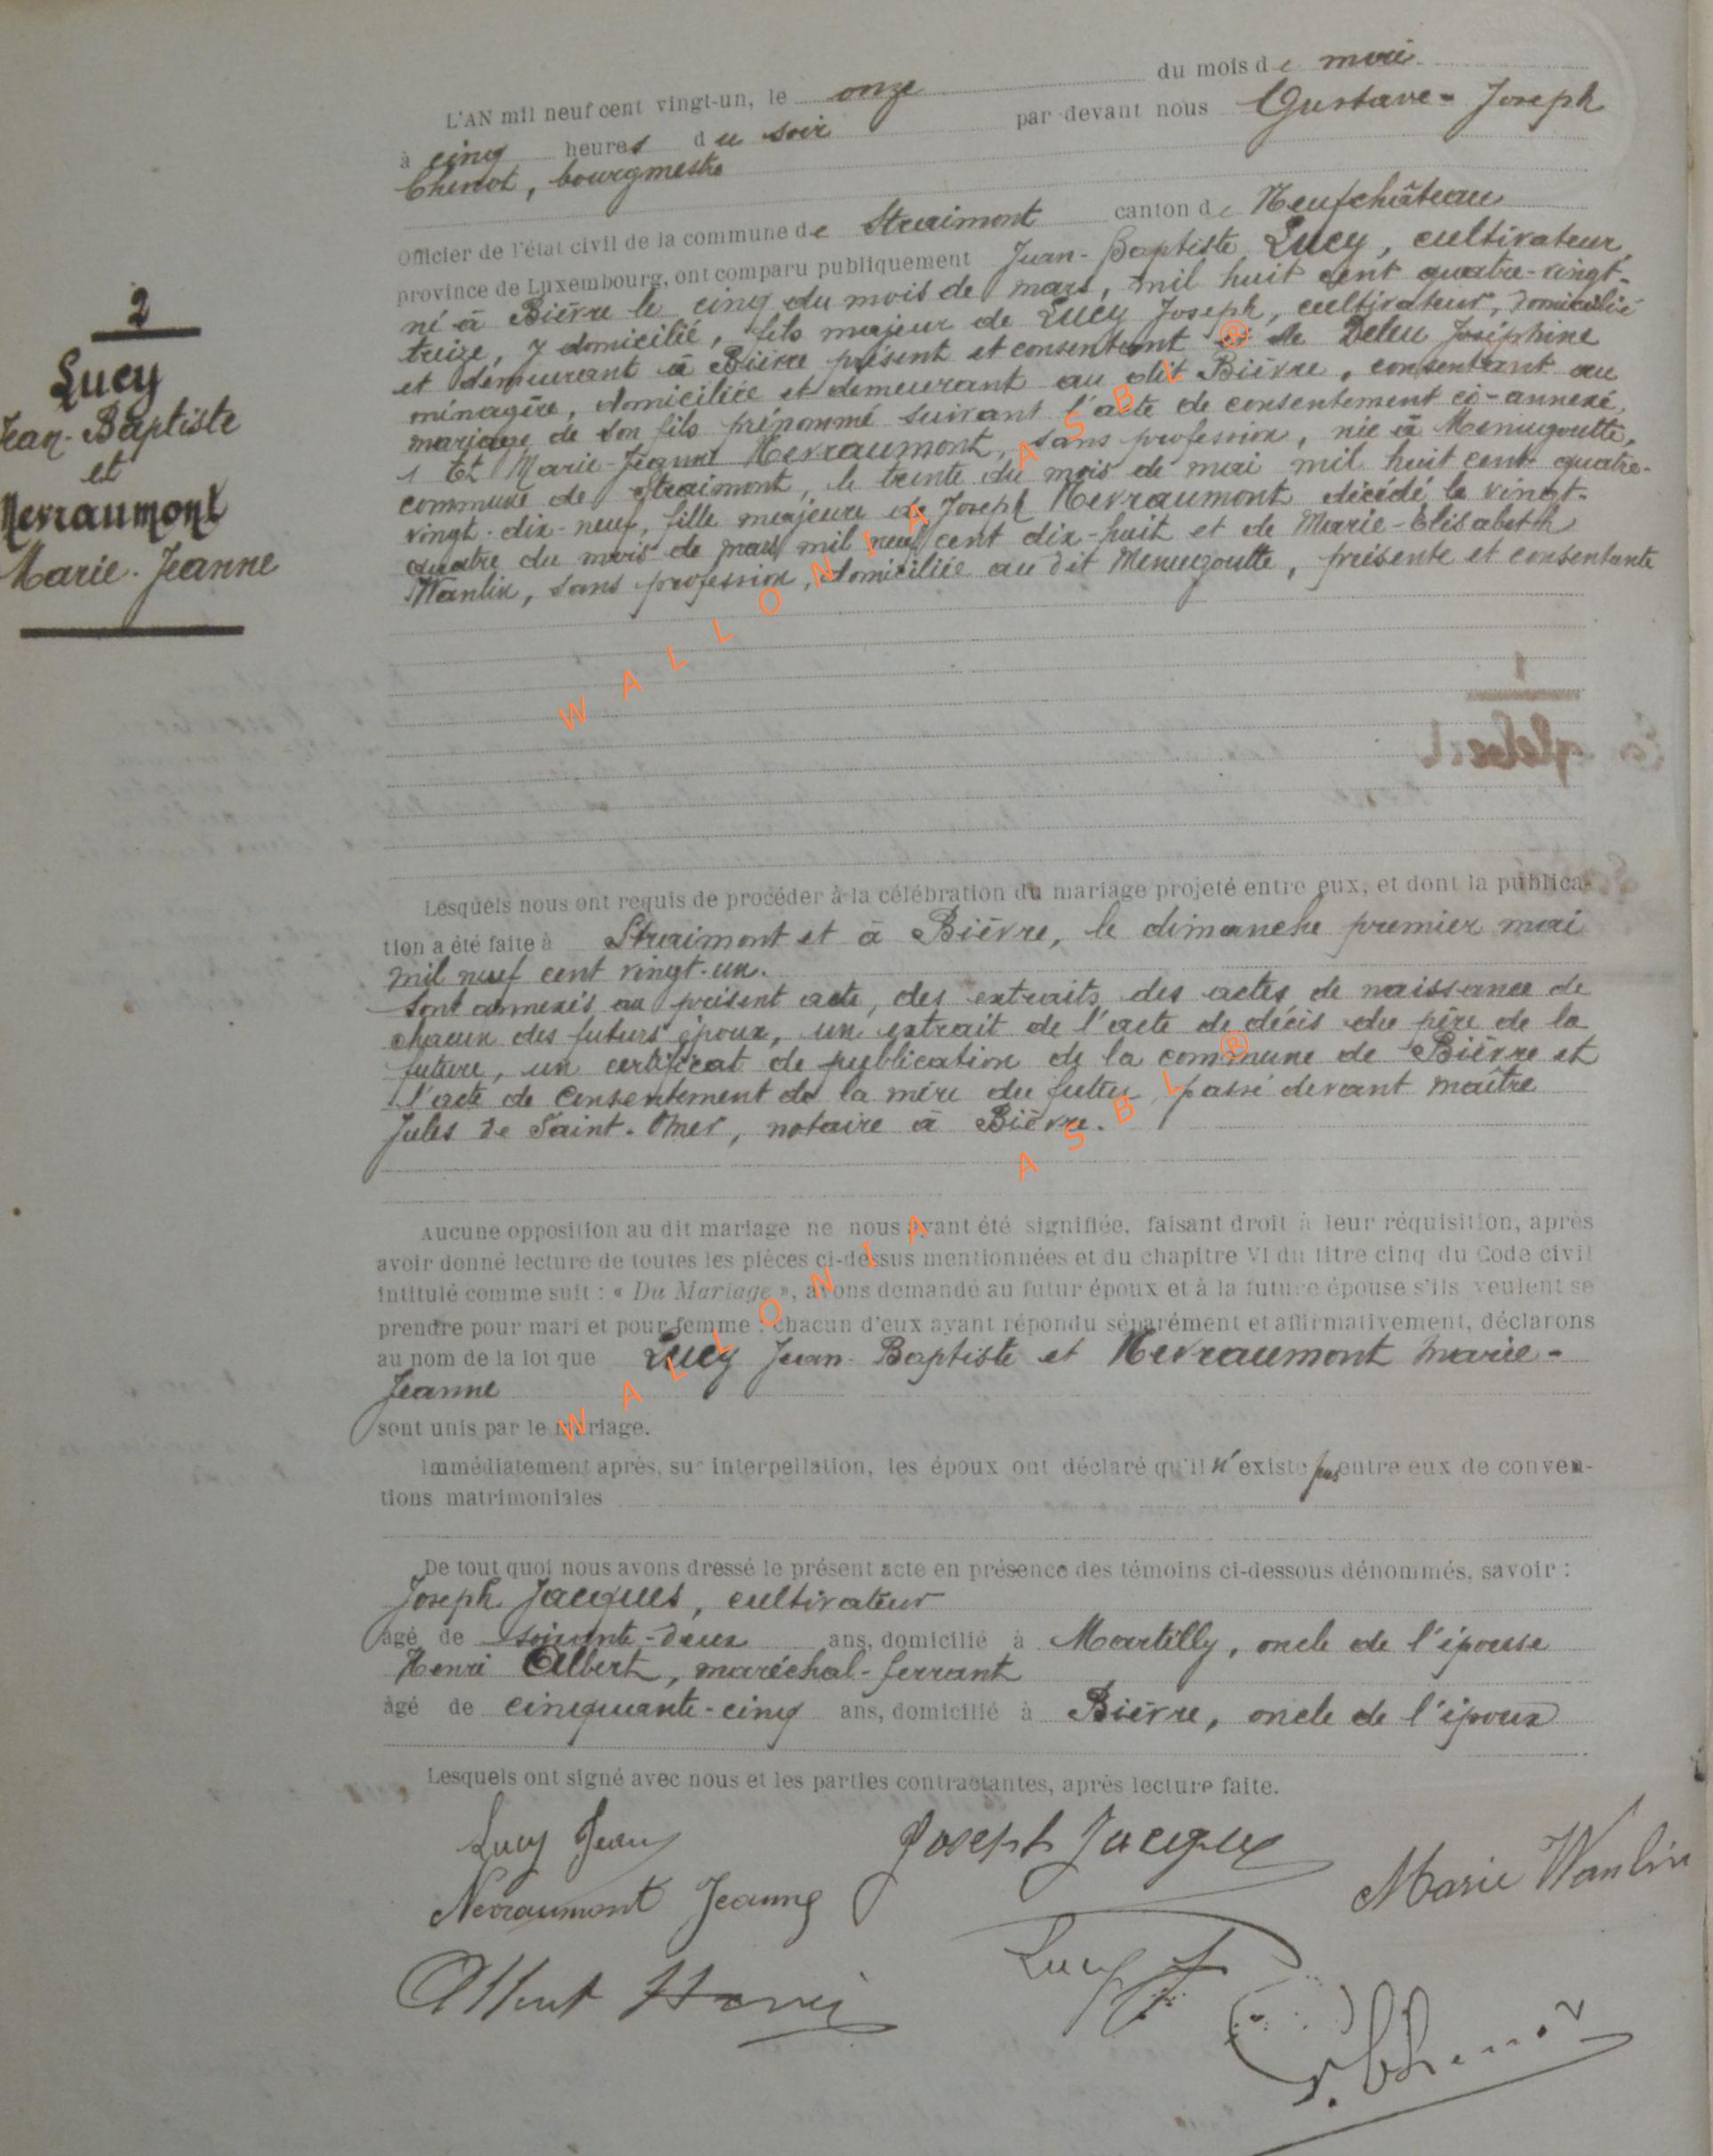 2
Lucy
Jean-Baptiste
et
Nevraumont
Marie-Jeanne
L'AN mil neuf cent vingt-un, le onze du mois de mai
à cinq heures du soir par devant nous Gustave-Joseph
Chenot, bourgmestre
Officier de l'état civil de la commune de Straimont canton de Neufchâteau
province de Luxembourg, ont comparu publiquement Jean-Baptiste Lucy, cultivateur,
né à Bièvre le cinq du mois de mars, mil huit cent quatre-vingt-
treize, y domicilié, fils majeur de Lucy Joseph, cultivateur, domicilié
et demeurant à Bièvre présent et consentant et de Deleu Joséphine
ménagère, domiciliée et demeurant au dit Bièvre, consentant au
mariage de son fils prénommé suivant l'acte de consentement ci-annexé.
1 Et Marie-Jeanne Nevraumont, sans profession, née à Menugoutte,
commune de Straimont, le trente du mois de mai mil huit cent quatre-
vingt-dix-neuf, fille majeure de Joseph Nevraumont décédé le vingt-
quatre du mois de mars mil neuf cent dix-huit et de Marie-Elisabeth
Wanlin, sans profession, domiciliée au dit Menugoutte, présente et consentante
Lesquels nous ont requis de procéder à la célébration du mariage projeté entre eux, et dont la publica-
tion a été faite à Straimont et à Bièvre, le dimanche premier mai
mil neuf cent vingt-un.
Sont annexés au présent acte, des extraits des actes de naissance de
chacun des futurs époux, un extrait de l'acte de décès du père de la
future, un certificat de publication de la commune de Bièvre et
l'acte de consentement de la mère du futur passé devant maître
Jules de Saint-Omer, notaire à Bièvre.
Aucune opposition au dit mariage ne nous ayant été signifiée, faisant droit à leur réquisition, après
avoir donné lecture de toutes les pièces ci-dessus mentionnées et du chapitre VI du titre cinq du Code civil
intitulé comme suit : « Du Mariage », avons demandé au futur époux et à la future épouse s'ils veulent se
prendre pour mari et pour femme ; chacun d'eux ayant répondu séparément et affirmativement, déclarons
au nom de la loi que Lucy Jean-Baptiste et Nevraumont Marie-
Jeanne
sont unis par le mariage.
Immédiatement après, sur interpellation, les époux ont déclaré qu'il n'existe pas entre eux de conven-
tions matrimoniales
De tout quoi nous avons dressé le présent acte en présence des témoins ci-dessous dénommés, savoir :
Joseph Jacques, cultivateur
âgé de soixante-deux ans, domicilié à Martilly, oncle de l'épouse
Henri Albert, maréchal-ferrant
âgé de cinquante-cinq ans, domicilié à Bièvre, oncle de l'époux
Lesquels ont signé avec nous et les parties contractantes, après lecture faite.
Lucy Jean
Joseph Jacques
Marie Wanlin
Nevraumont Jeanne
Lucy J
Albert Henri
WALLONIA ASBL ®
WALLONIA ASBL ®